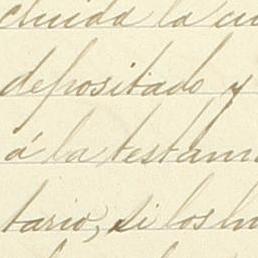 cluida la cu
depositado y
á la testam
tario, si los h